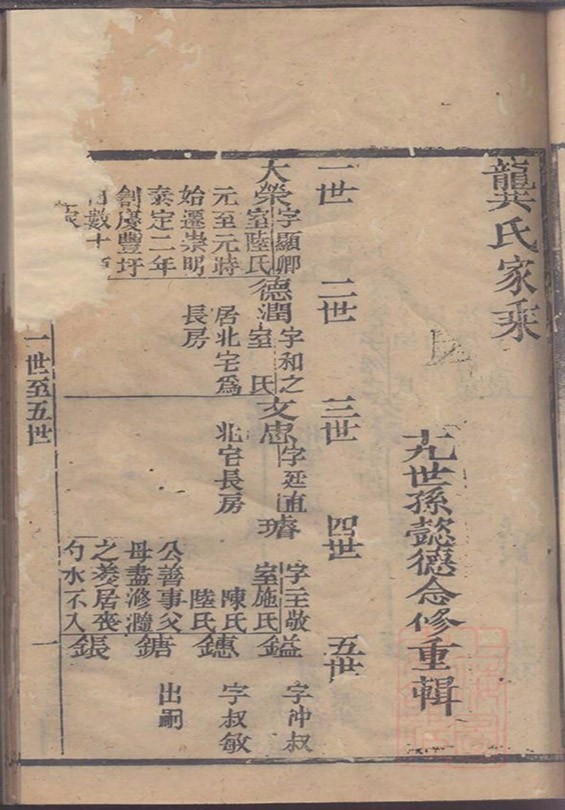 龔氏家乘
十九世孫懿德念修重輯
一世
二世
三世
四世
五世
大榮
字顯卿
室陸氏
元至元時
始遷崇明
泰定二年
創慶豐圩
數十
德潤
字和之
室 氏
居北宅爲
長房
文忠
字廷直
北宅長房
璿
字主敬
室施氏
陳氏
陸氏
公善事父
母盡滫瀡
之養居喪
勺水不入
鎰
字沖叔
鏸
字叔敏
鎕
出嗣
鋹
一世至五世
一